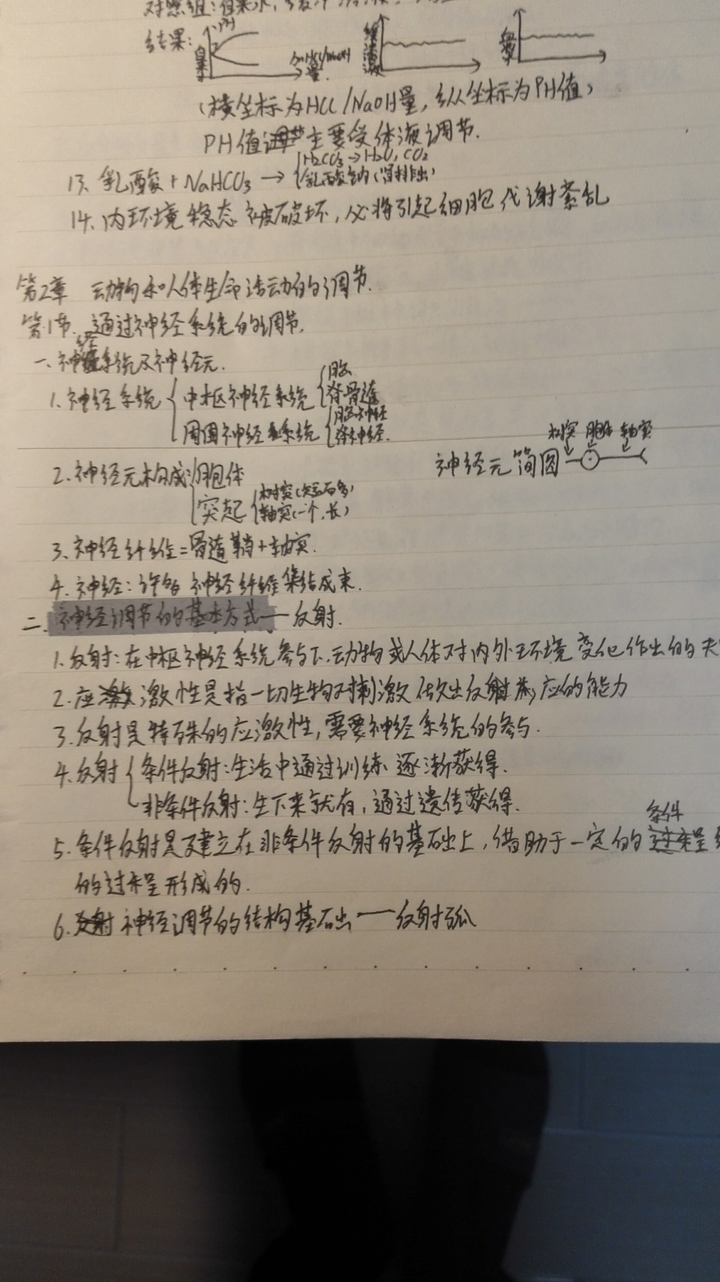 对照组:自来水,
结果: PH
(横坐标为HCl/NaOH量,纵坐标为PH值)
PH值 主要受体液调节.
13. 乳酸+NaHCO3→ H2CO3→H2O, CO2
乳酸钠(
14. 内环境稳态被破坏,必将引起细胞代谢紊乱
第2章 动物和人体生命活动的调节.
第1节. 通过神经系统的调节.
一、神经系统及神经元.
1. 神经系统 中枢神经系统 脑
脊髓
周围神经系统 脑神经
脊神经.
2. 神经元构成: 胞体
突起 树突(短而多)
轴突(一个,长)
神经元简图 树突 胞体 轴突
3. 神经纤维=髓鞘+轴突.
4. 神经:许多神经纤维集结成束.
二、神经调节的基本方式——反射.
1. 反射:在中枢神经系统参与下,动物或人体对内外环境变化作出的
2. 应激性是指一切生物对刺激做出反应的能力
3. 反射是特殊的应激性,需要神经系统的参与.
4. 反射 条件反射:生活中通过训练逐渐获得.
非条件反射:生下来就有,通过遗传获得.
5. 条件反射是建立在非条件反射的基础上,借助于一定的条件
的过程形成的.
6. 神经调节的结构基础——反射弧